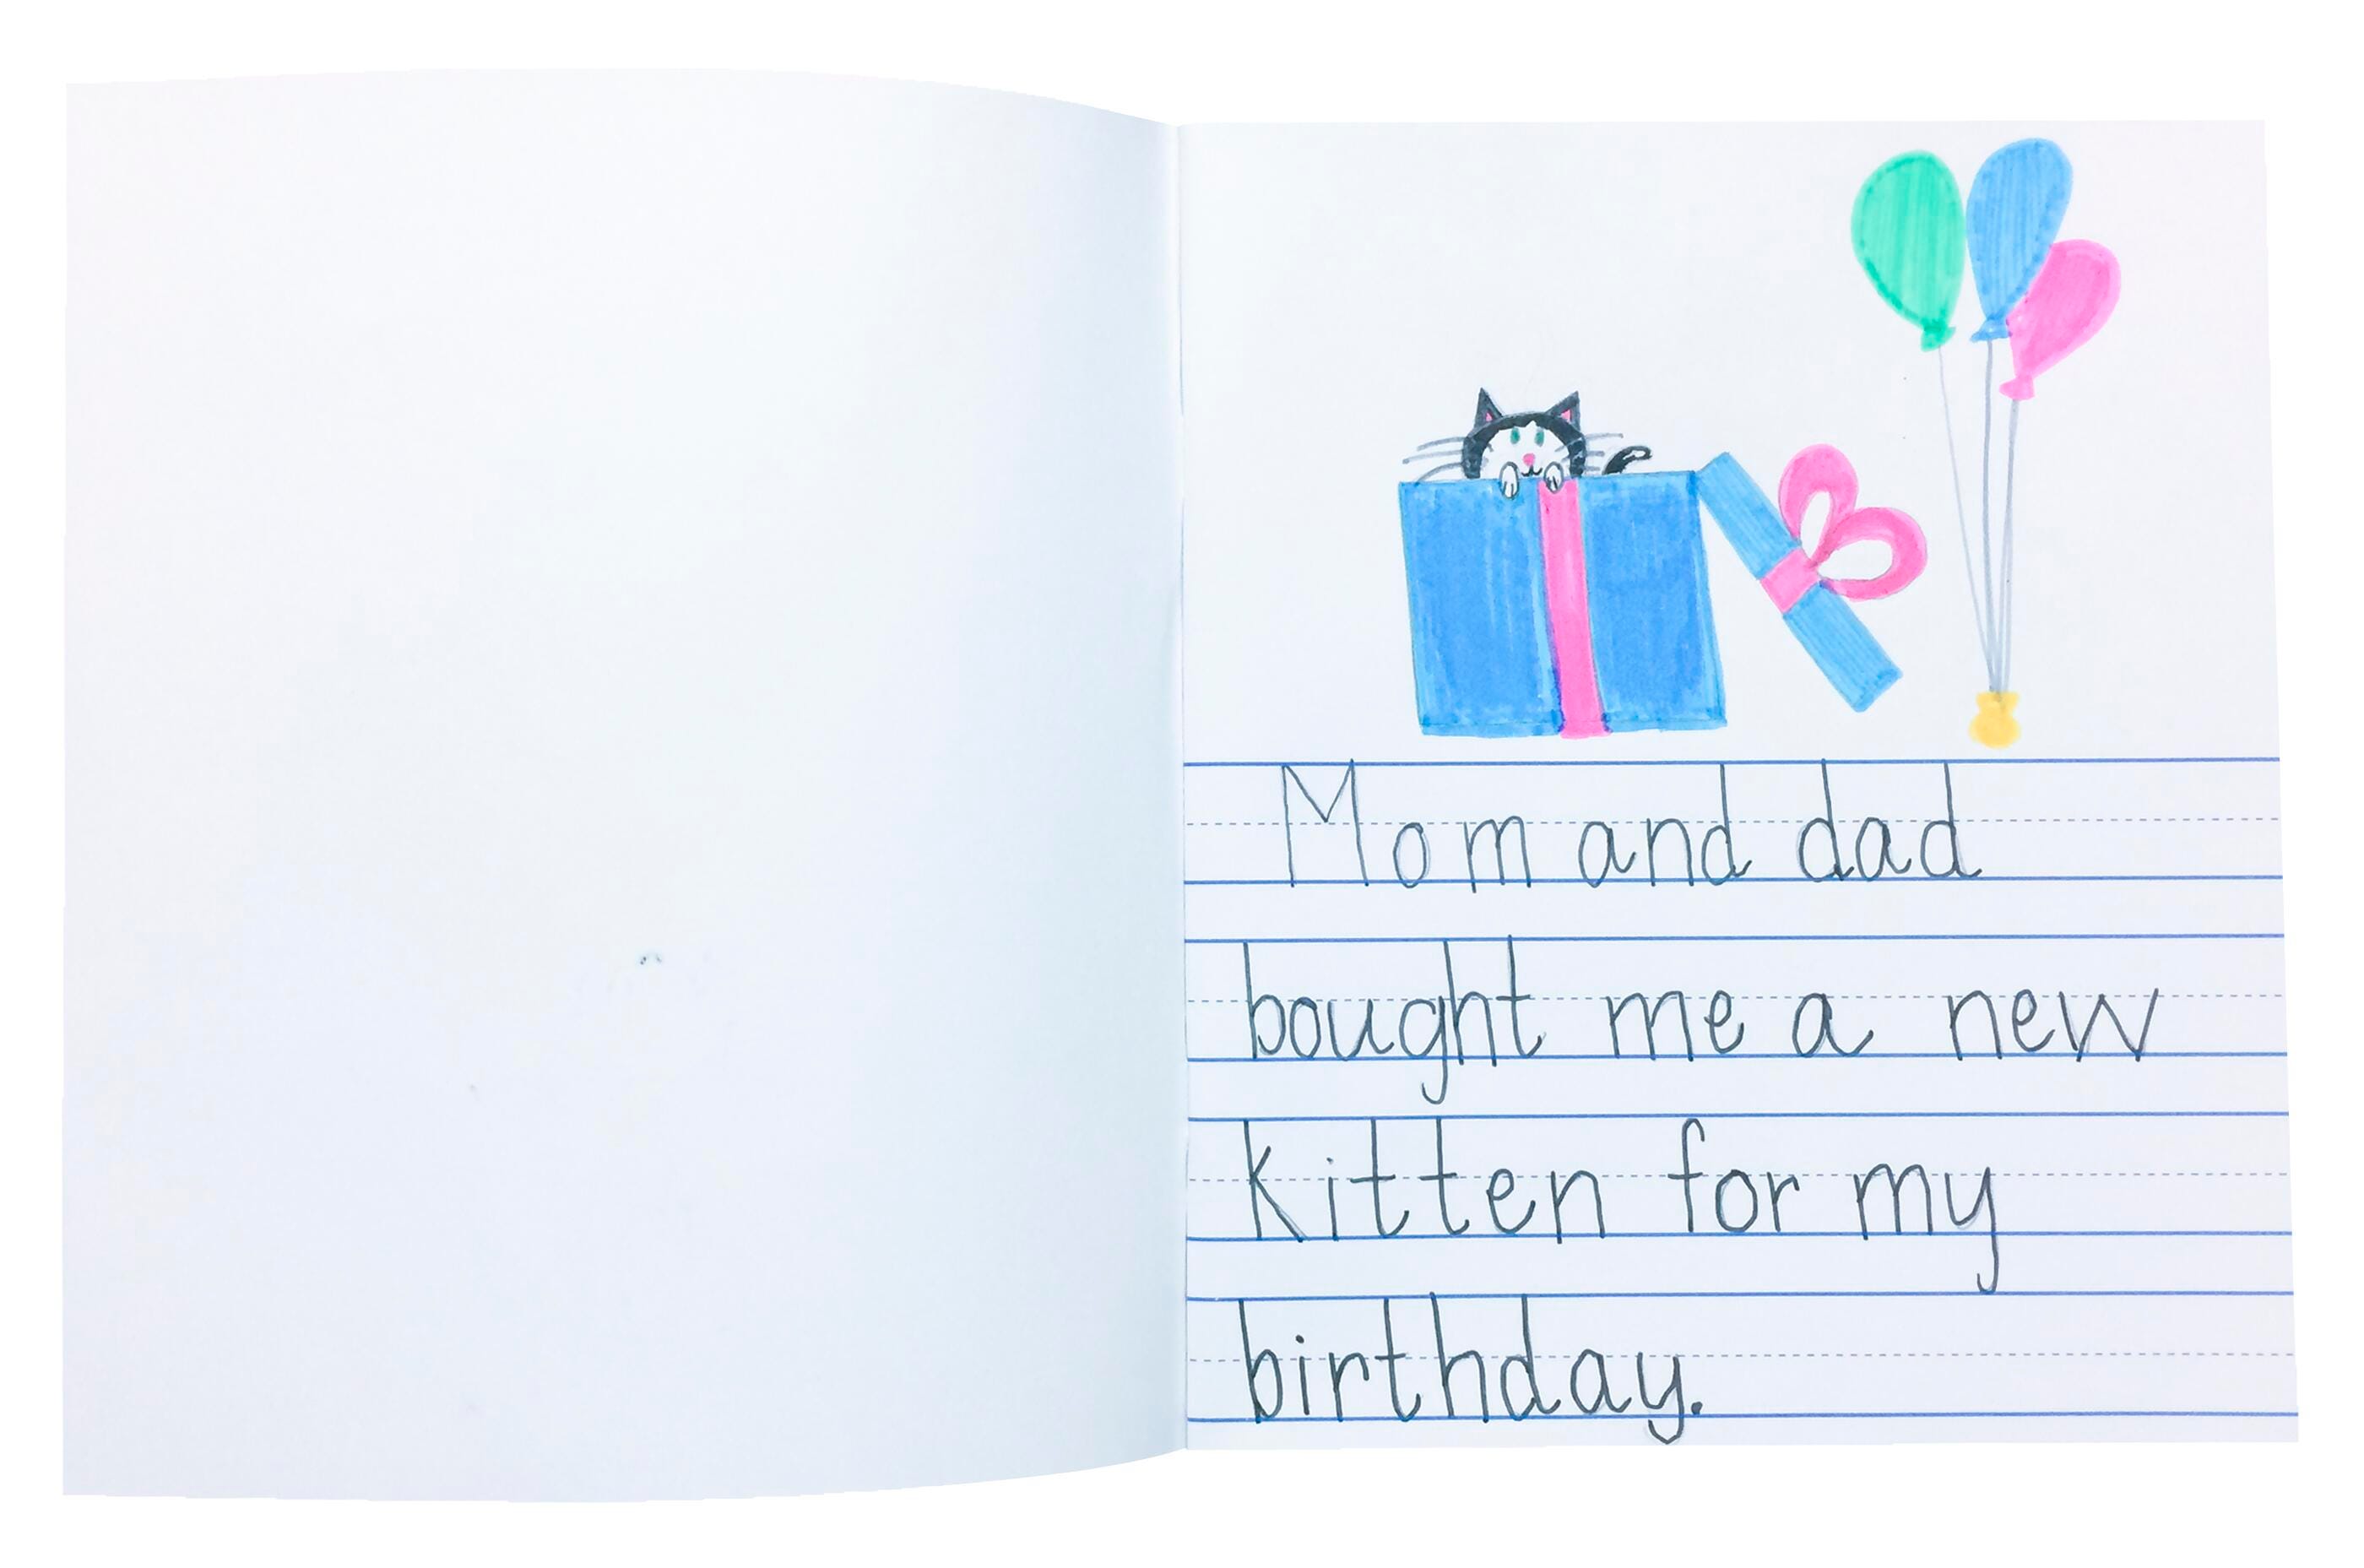 Mom and dad
bought me a new
kitten for my
birthday.